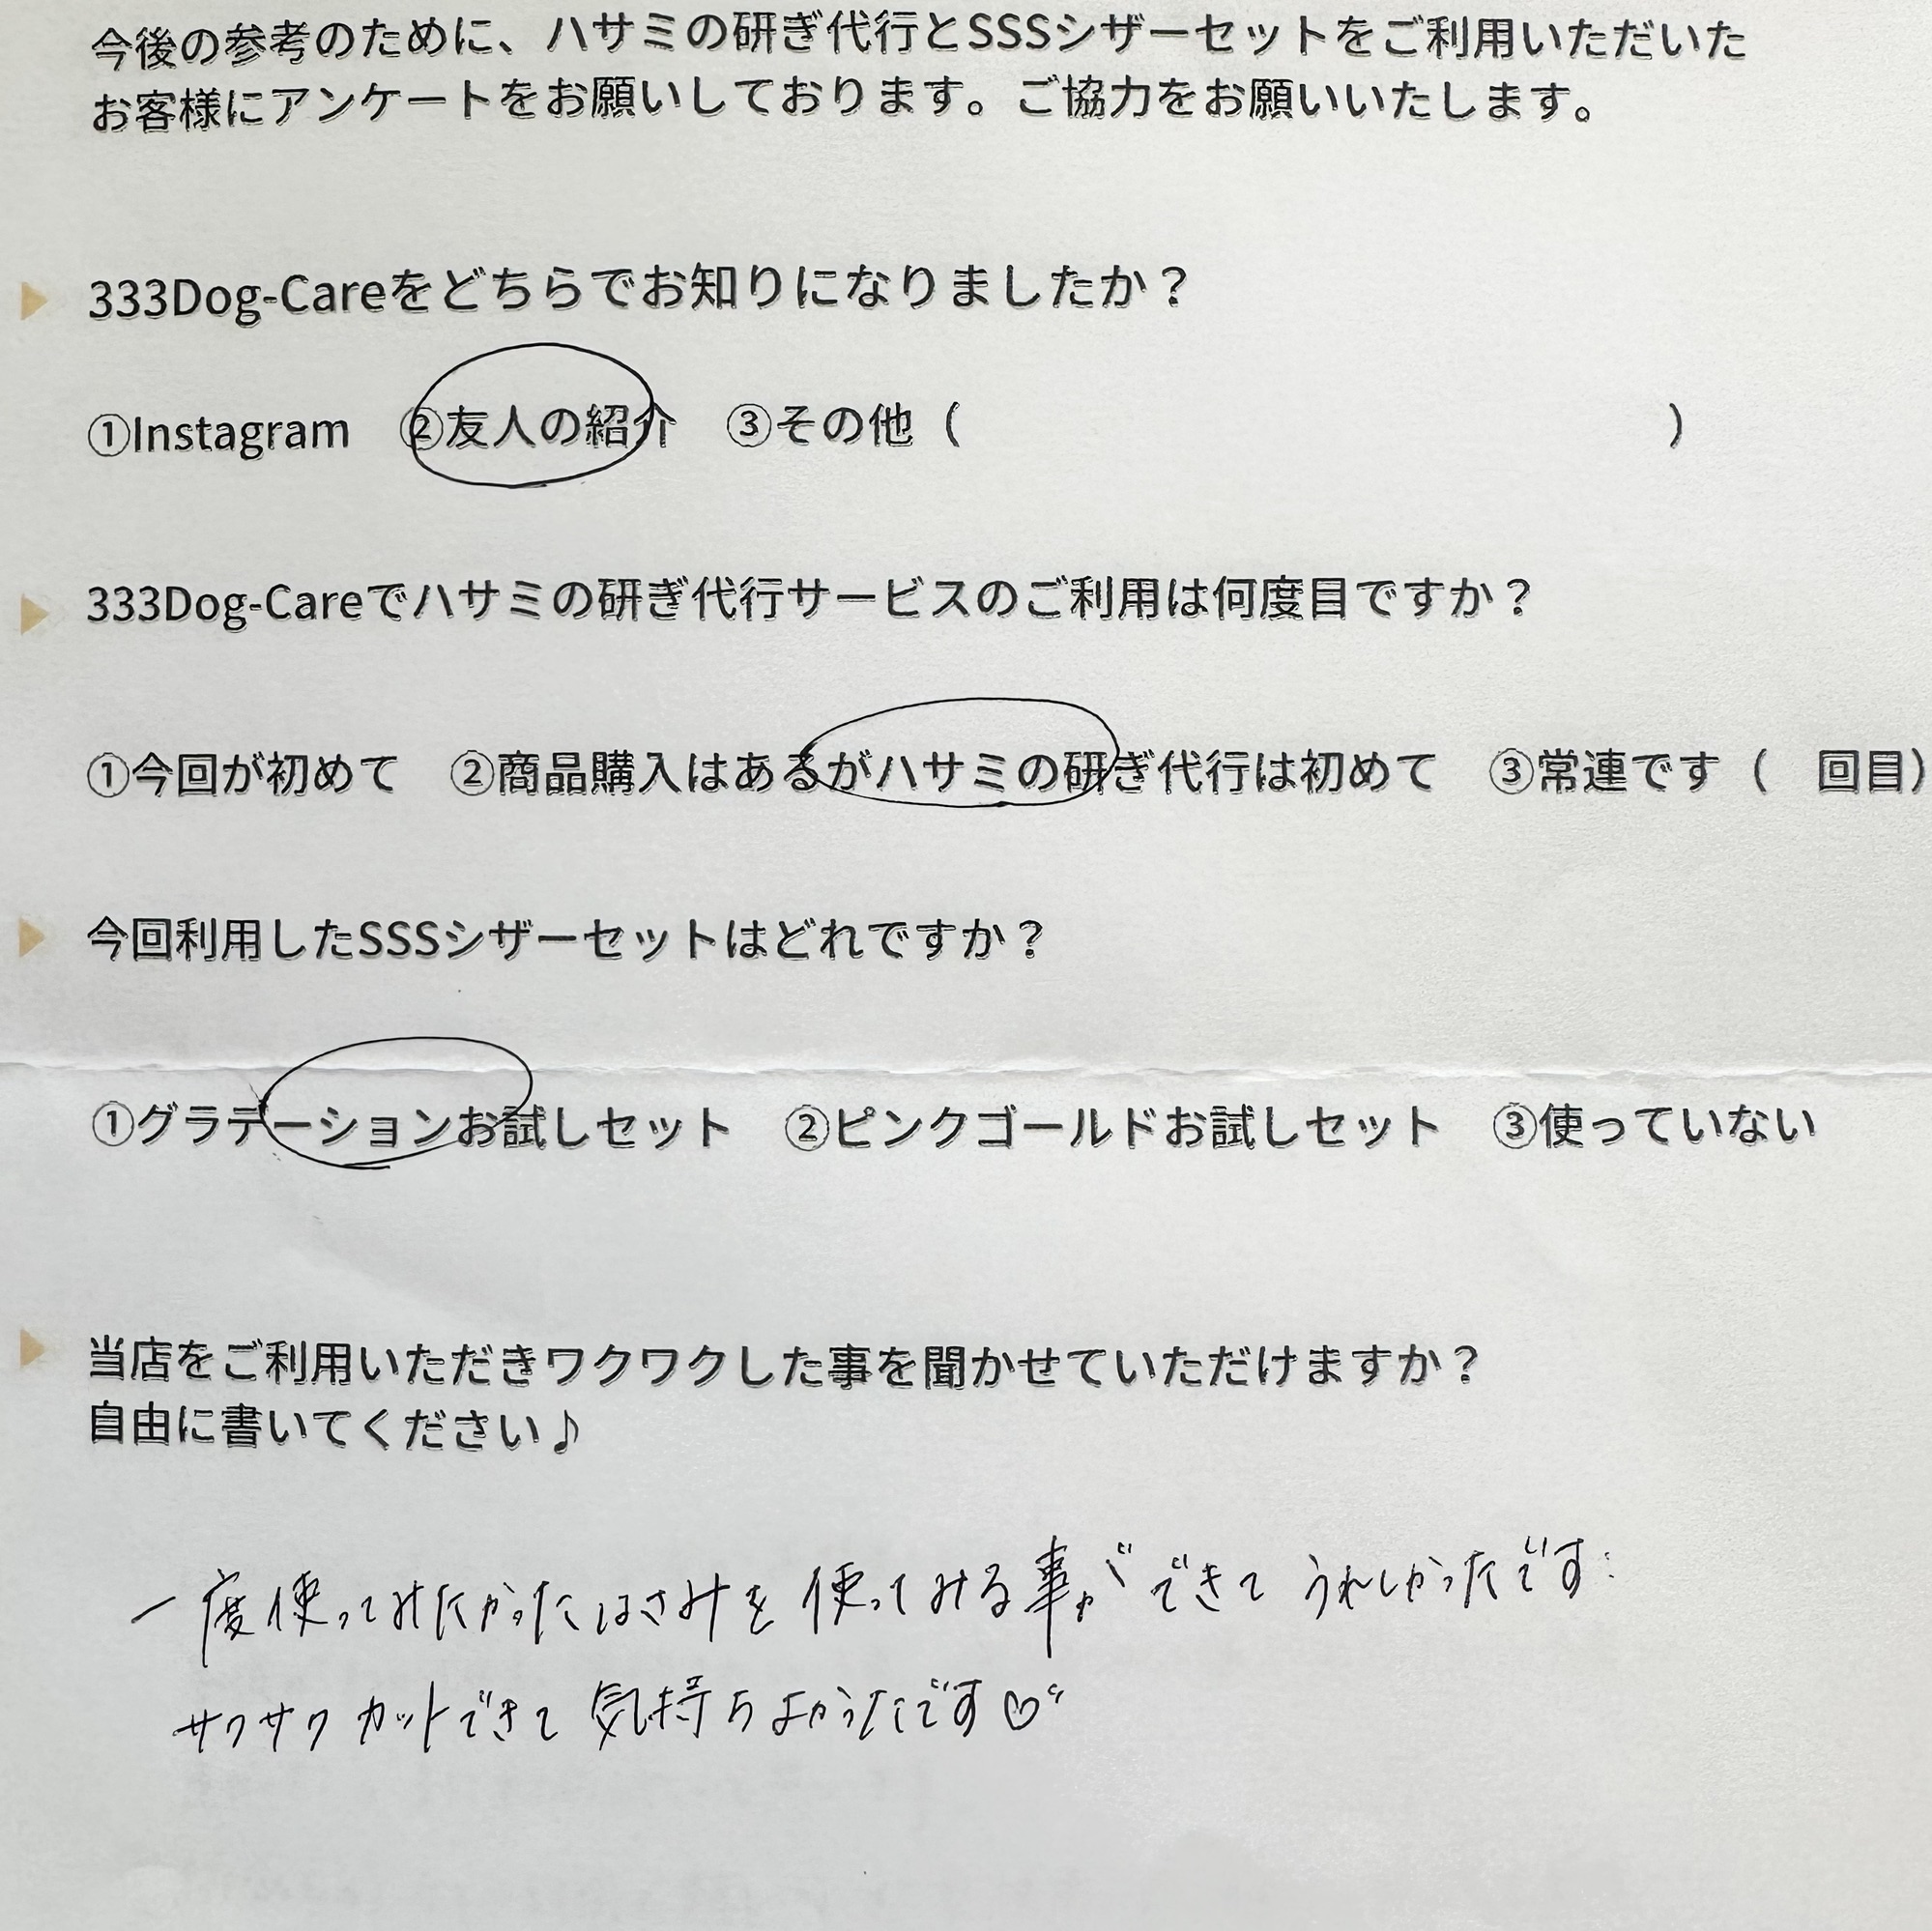 今後の参考のために、ハサミの研ぎ代行とSSSシザーセットをご利用いただいた
お客様にアンケートをお願いしております。ご協力をお願いいたします。
333Dog-Careをどちらでお知りになりましたか？
①Instagram　②友人の紹介　③その他（　　　　　　　　　　　　　　　）
333Dog-Careでハサミの研ぎ代行サービスのご利用は何度目ですか？
①今回が初めて　②商品購入はあるがハサミの研ぎ代行は初めて　③常連です（　回目）
今回利用したSSSシザーセットはどれですか？
①グラデーションお試しセット　②ピンクゴールドお試しセット　③使っていない
当店をご利用いただきワクワクした事を聞かせていただけますか？
自由に書いてください♪
一度使ってみたかったはさみを使ってみる事ができてうれしかったです
サクサクカットできて気持ちよかったです♡